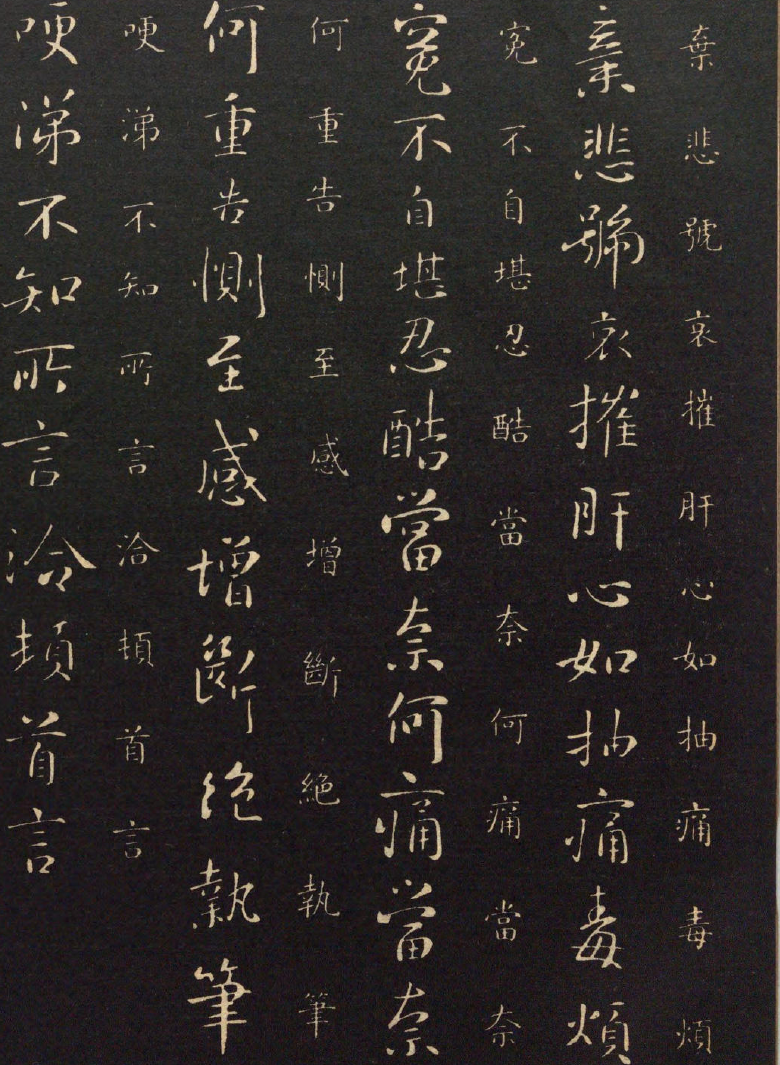 棄悲號哀摧肝心如抽痛毒煩
棄悲號哀摧肝心如抽痛毒煩
冤不自堪忍酷當奈何痛當奈
冤不自堪忍酷當奈何痛當奈
何重告惻至感增斷絕執筆
何重告惻至感增斷絶執筆
哽涕不知所言洽頓首言
哽涕不知所言洽頓首言